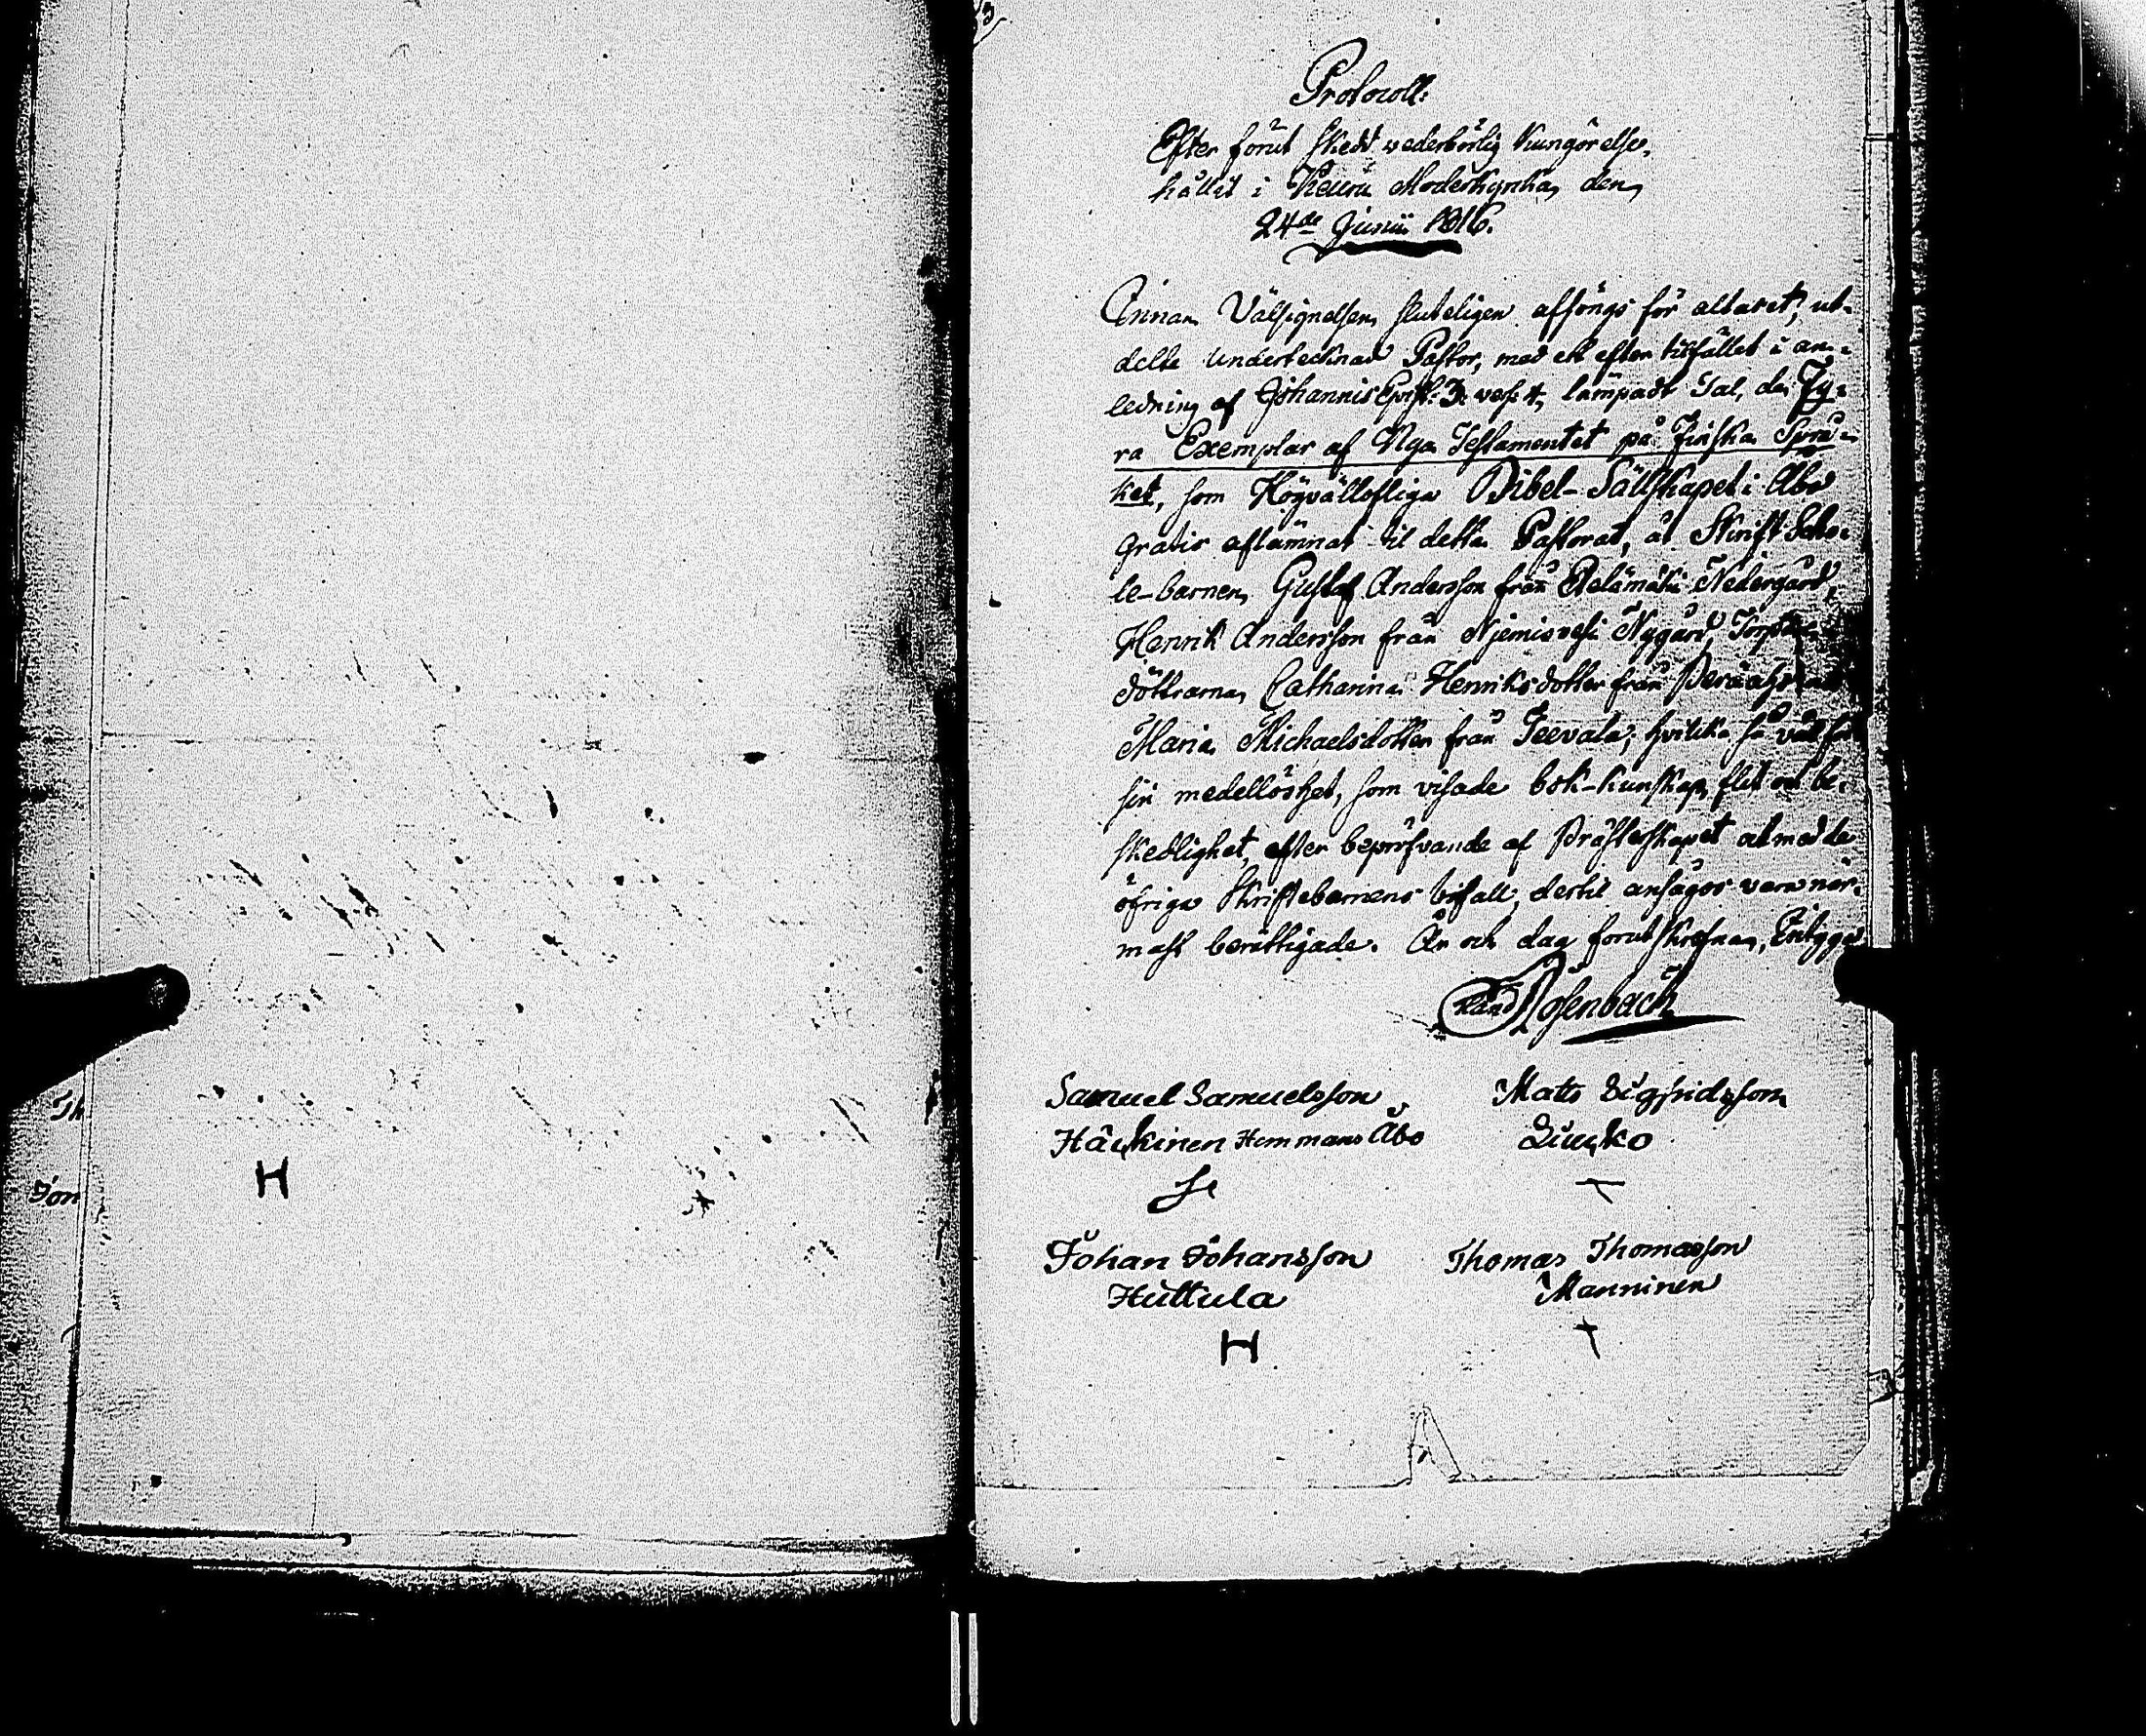 Protocoll:
Efter förut skedt wederbörlig Kungörelse,
hållit i Keuru Moderkyrka, den
24de Junii 1816.
Innan Välsignelsen sluteligen afsöngs för altaret, ut-
delte undertecknad Pastor, med ett efter tilfället i an-
ledning af Johannis Epist: 3. vers. 4, lämpadt Tal, de Fy-
ra Exemplar af Nya Testamentet på Finska Språ-
ket, som Högvällofliga Bibel-Sällskapet i Åbo
gratis aflämnat til detta Pastorat, åt Skrift Scho-
le-barnen, Gustaf Andersson från Nedergård,
Henrik Andersson från Niemisvesi Nygård, Torpare
döttrarna, Catharina Henriksdotter från
Maria Michaelsdotter från Teevala; hvilka så väl för
sin medellöshet, som visade bok-kunskap, flit och be-
skedlighet, efter bepröfvande af Prästerskapet och med de
öfriga Skriftebarnens bifall, dertil ansågos vara när-
mast berättigade. År och dag förut skrefna,
Rosenbach
Samuel Samuelsson
Häkkinen Hemmans Åbo
Mats Sigfridsson
Johan Johansson
Huttula
H
Thomas Thomasson
Manninen
Th
Jon
H